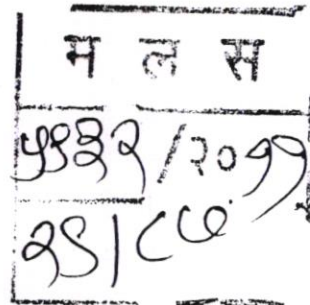 म ल स
५१३२/२०११
२९/८७